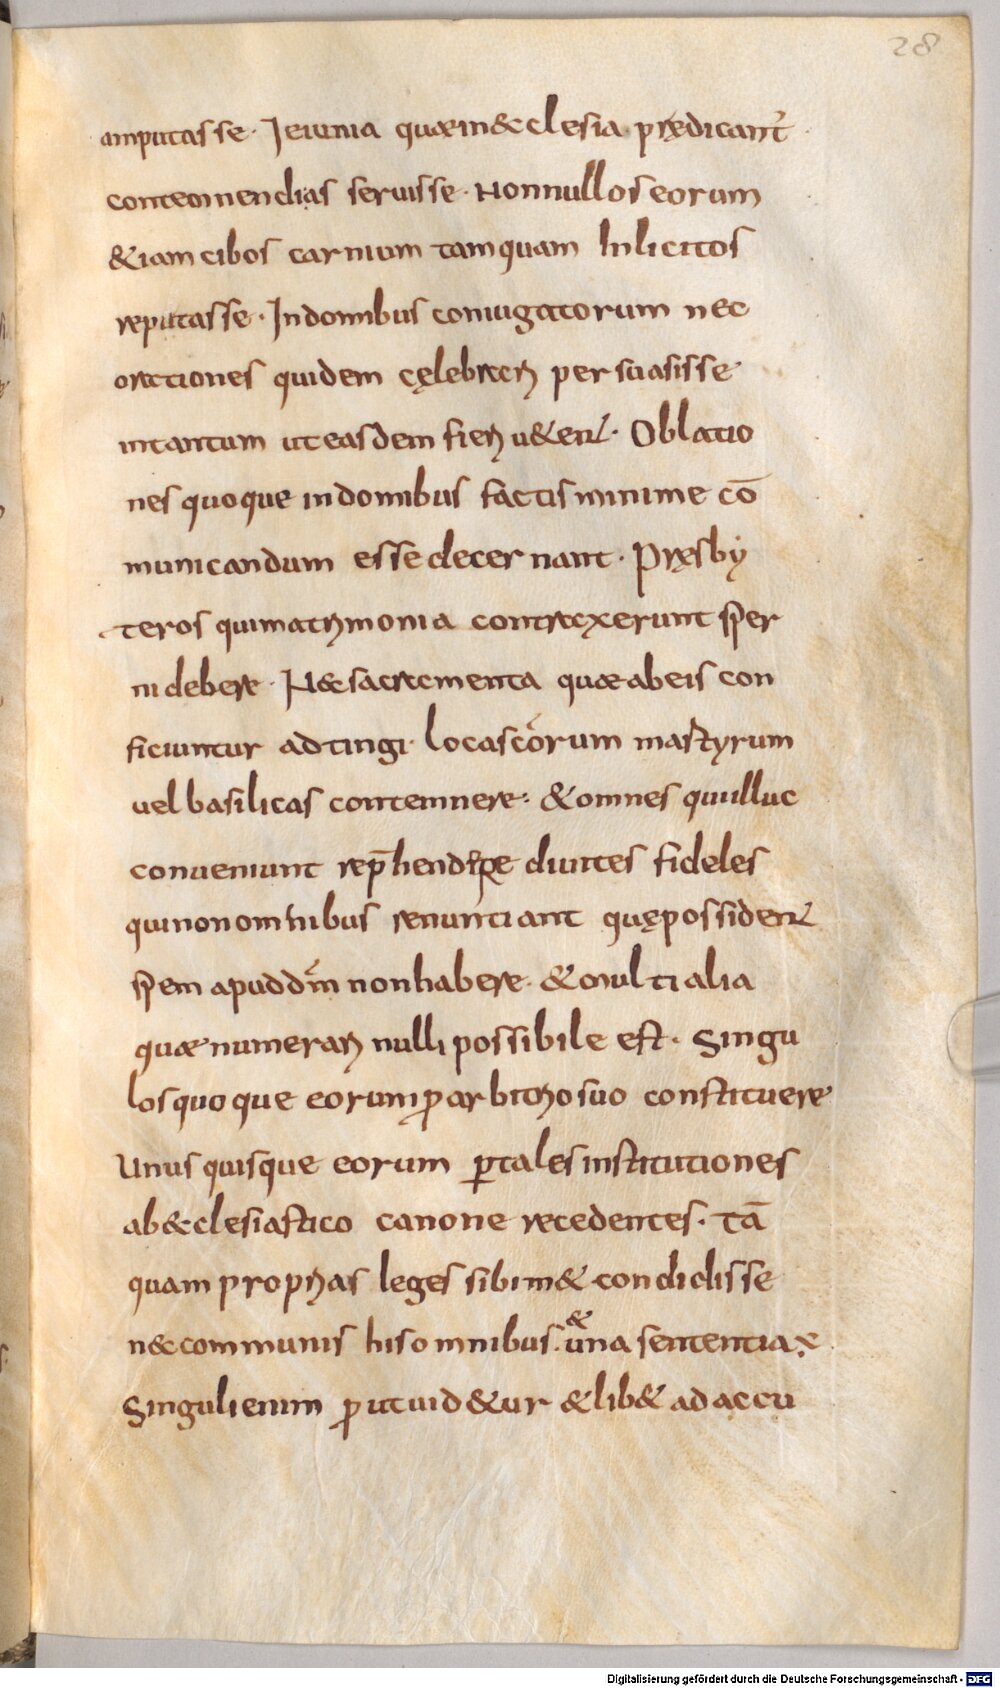 28
amputasse. Ieiunia quæ in &clesia prędicant᷑
contemnendias seruisse. Nonnullos eorum
&iam cibos carnium tamquam Inlicitos
reputasse. In domibus coniugatorum nec
orationes quidem cęlebrari persuasisse
intantum ut easdem fieri u&ent. Oblatio
nes quoque in domibus factis minime cō
municandum esse decernant. Pręsby
teros qui matrimonia contraxerunt sper
ni debere. N& sacramenta quæ ab eis con
ficiuntur adtingi. loca scōrum martyrum
uel basilicas contemnere. & omnes qui illuc
conueniunt rep̄hendere diuites fideles
qui non omnibus renuntiant quę possident
spem apud dm̄ non habere. & multi alia
quæ numerari nulli possibile est. Singu
los quoque eorum ꝓ arbitrio suo constituere
Unusquisque eorum ꝑ tales institutiones
ab &clesiastico canone recedentes. tā
quam proprias leges sibim& condidisse
n& communis his omnibus. & una sententia
Singuli enim ꝓut uid&ur & lib& ad accu
Digitalisierung gefördert durch die Deutsche Forschungsgemeinschaft - DFG